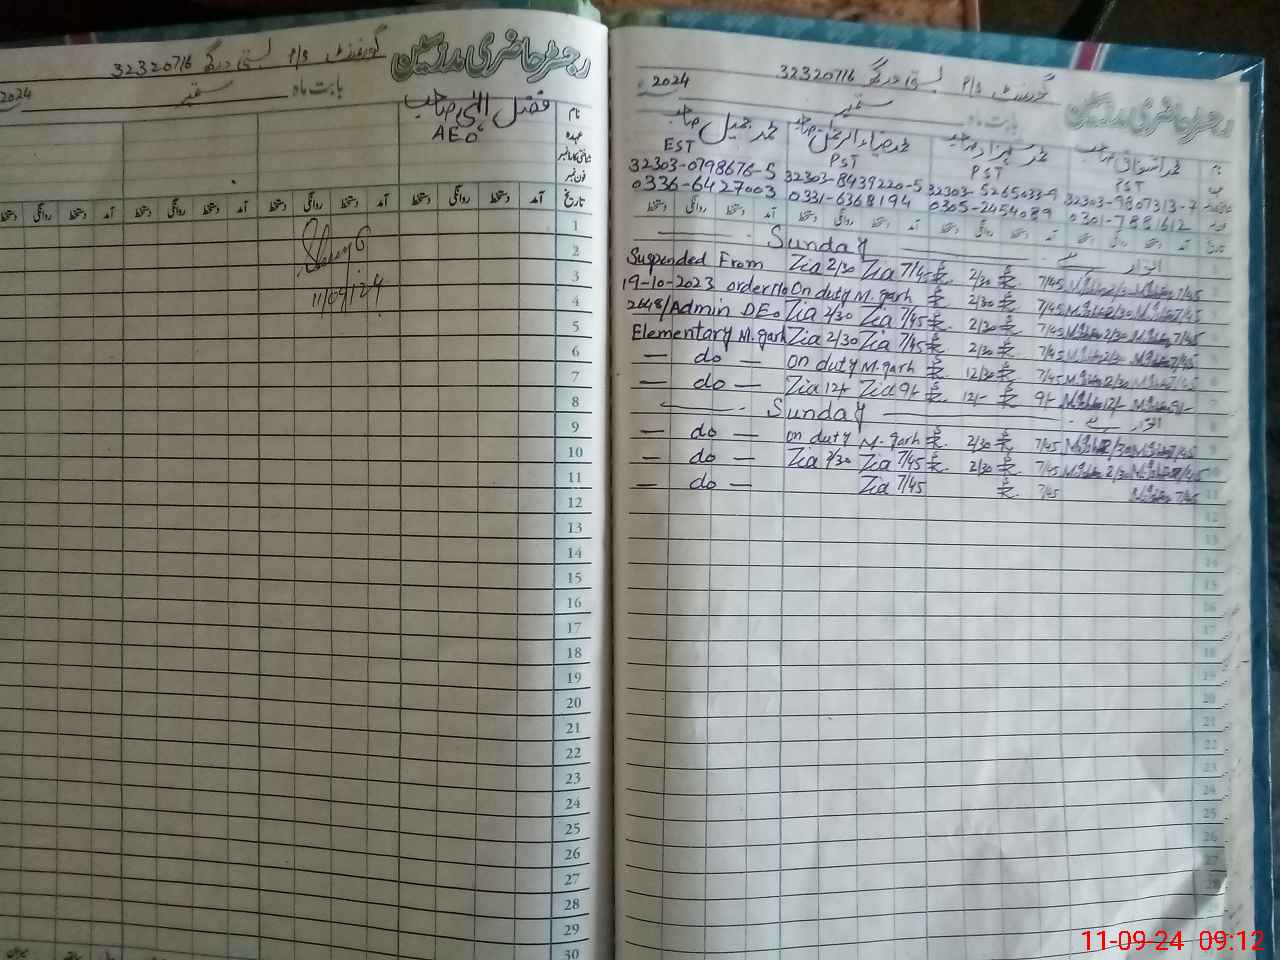 رجسٹر حاضری مدرسین
گورنمنٹ P/S بستی درگھ 32320716
بابت ماہ ستمبر 2024
نام
فضل الٰہی صاحب
عہدہ
AEO
فون نمبر
تاریخ آمد دستخط روانگی دستخط آمد دستخط روانگی دستخط آمد دستخط روانگی دستخط آمد دستخط روانگی دستخط
1
2
3
11/09/24
4
5
6
7
8
9
10
11
12
13
14
15
16
17
18
19
20
21
22
23
24
25
26
27
28
29
30
رجسٹر حاضری مدرسین
گورنمنٹ P/S بستی درگھ 32320716
بابت ماہ ستمبر 2024
محمد اشتیاق صاحب محمد شہزاد صاحب محمد ضیاء الرحمٰن صاحب محمد جمیل صاحب
PST PST PST EST
32303-9807313-7 32303-5265033-9 32303-8439220-5 32303-0798676-5
0301-7881612 0305-2454089 0331-6368194 0336-6427003
اتوار Sunday
Suspended From Zia 2/30 Zia 7/45 2/30 7/45 2/30 7/45
19-10-2023 order No On duty M. garh 2/30 7/45 2/30 7/45
2648/Admin DEO Zia 2/30 Zia 7/45 2/30 7/45 2/30 7/45
Elementary M. garh Zia 2/30 Zia 7/45 2/30 7/45 2/30 7/45
— do — on duty M. garh 12/30 7/45 2/30 7/45
— do — Zia 12/- Zia 9/- 12/- 9/- 12/- 9/-
اتوار Sunday
— do — on duty M. garh 2/30 7/45 2/30 7/45
— do — Zia 2/30 Zia 7/45 2/30 7/45 2/30 7/45
— do — Zia 7/45 7/45 7/45
11
12
13
14
15
16
17
18
19
20
21
22
23
24
25
26
27
28
11-09-24 09:12